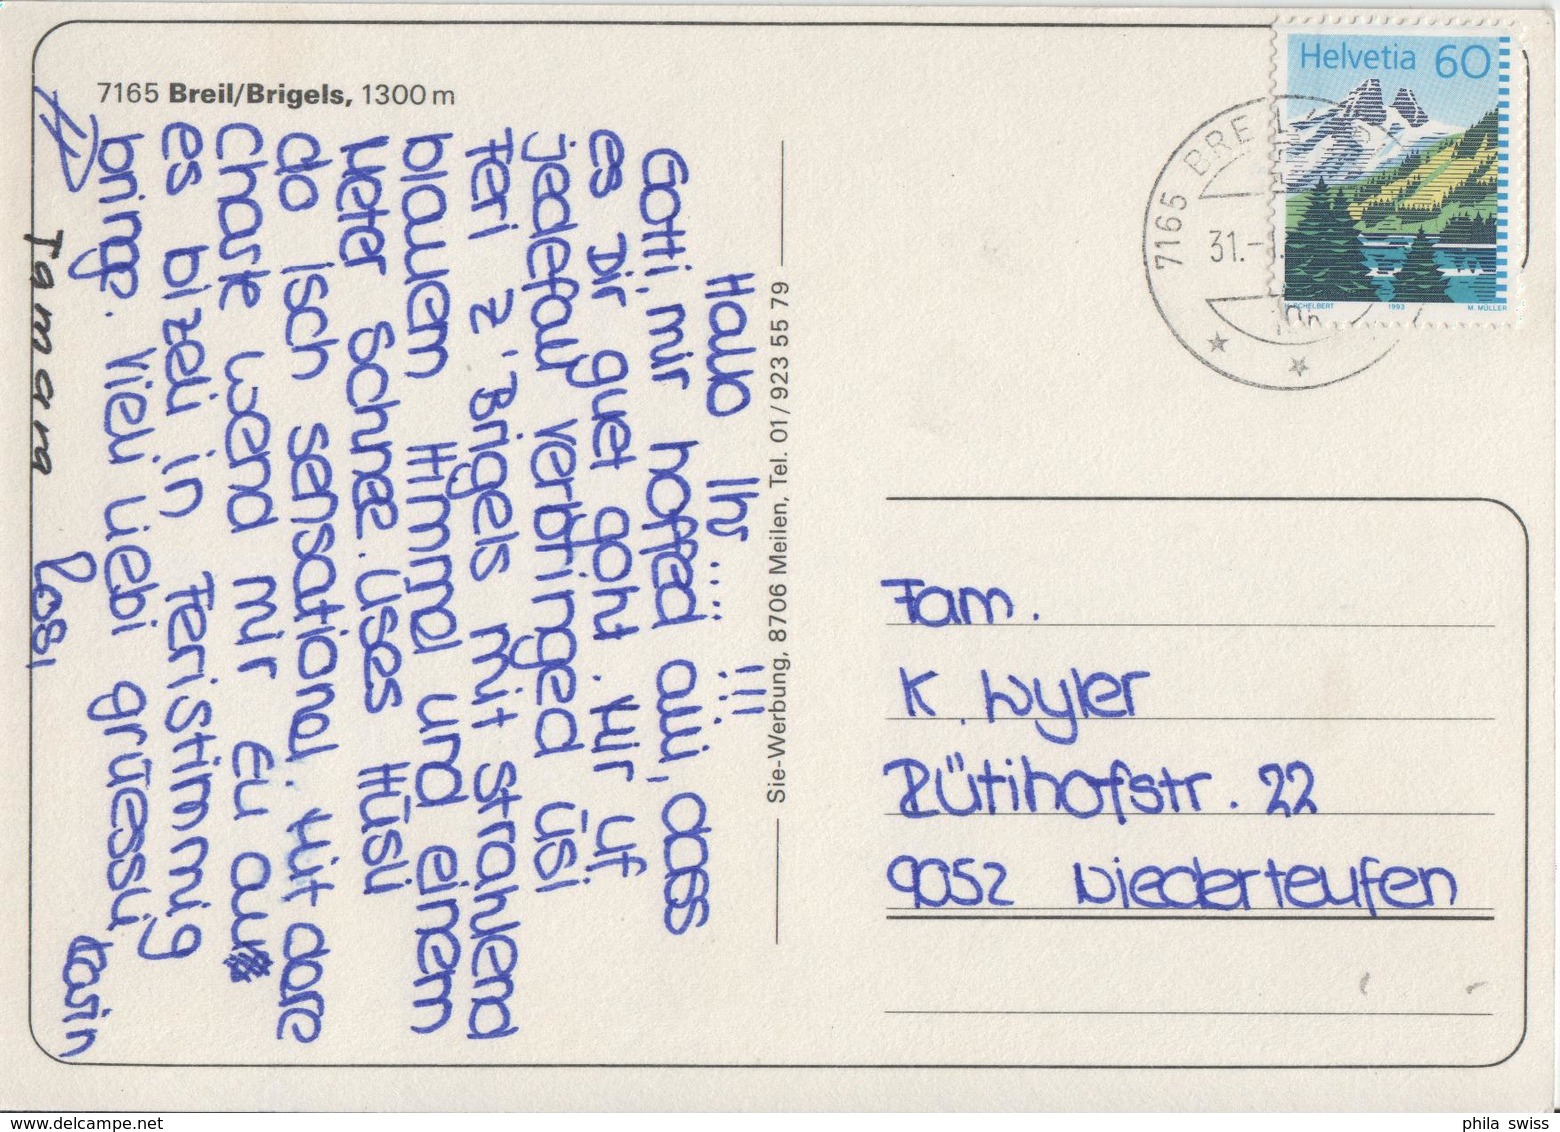 7165 Breil/Brigels, 1300 m
Hallo Ihr....!!!
Gotti, mir hoffed alli, dass
es Dir guet goht. Wir uf
jedefall verbringed üsi
Feri z'Brigels mit strahlend
blauem Himmel und einem
Meter Schnee. Üses Hüsli
do isch sensational. Mit dere
Charte wend mir Eu au
es bizeli in Feristimmig
bringe. Vieli liebi grüessli
Karin
Tamara Rosi
Sie-Werbung, 8706 Meilen, Tel. 01/923 55 79
Helvetia 60
1993 M. MÜLLER
7165 BREIL
31.
Fam.
K. Wyler
Rütihofstr. 22
9052 Niederteufen
www.delcampe.net
phila swiss